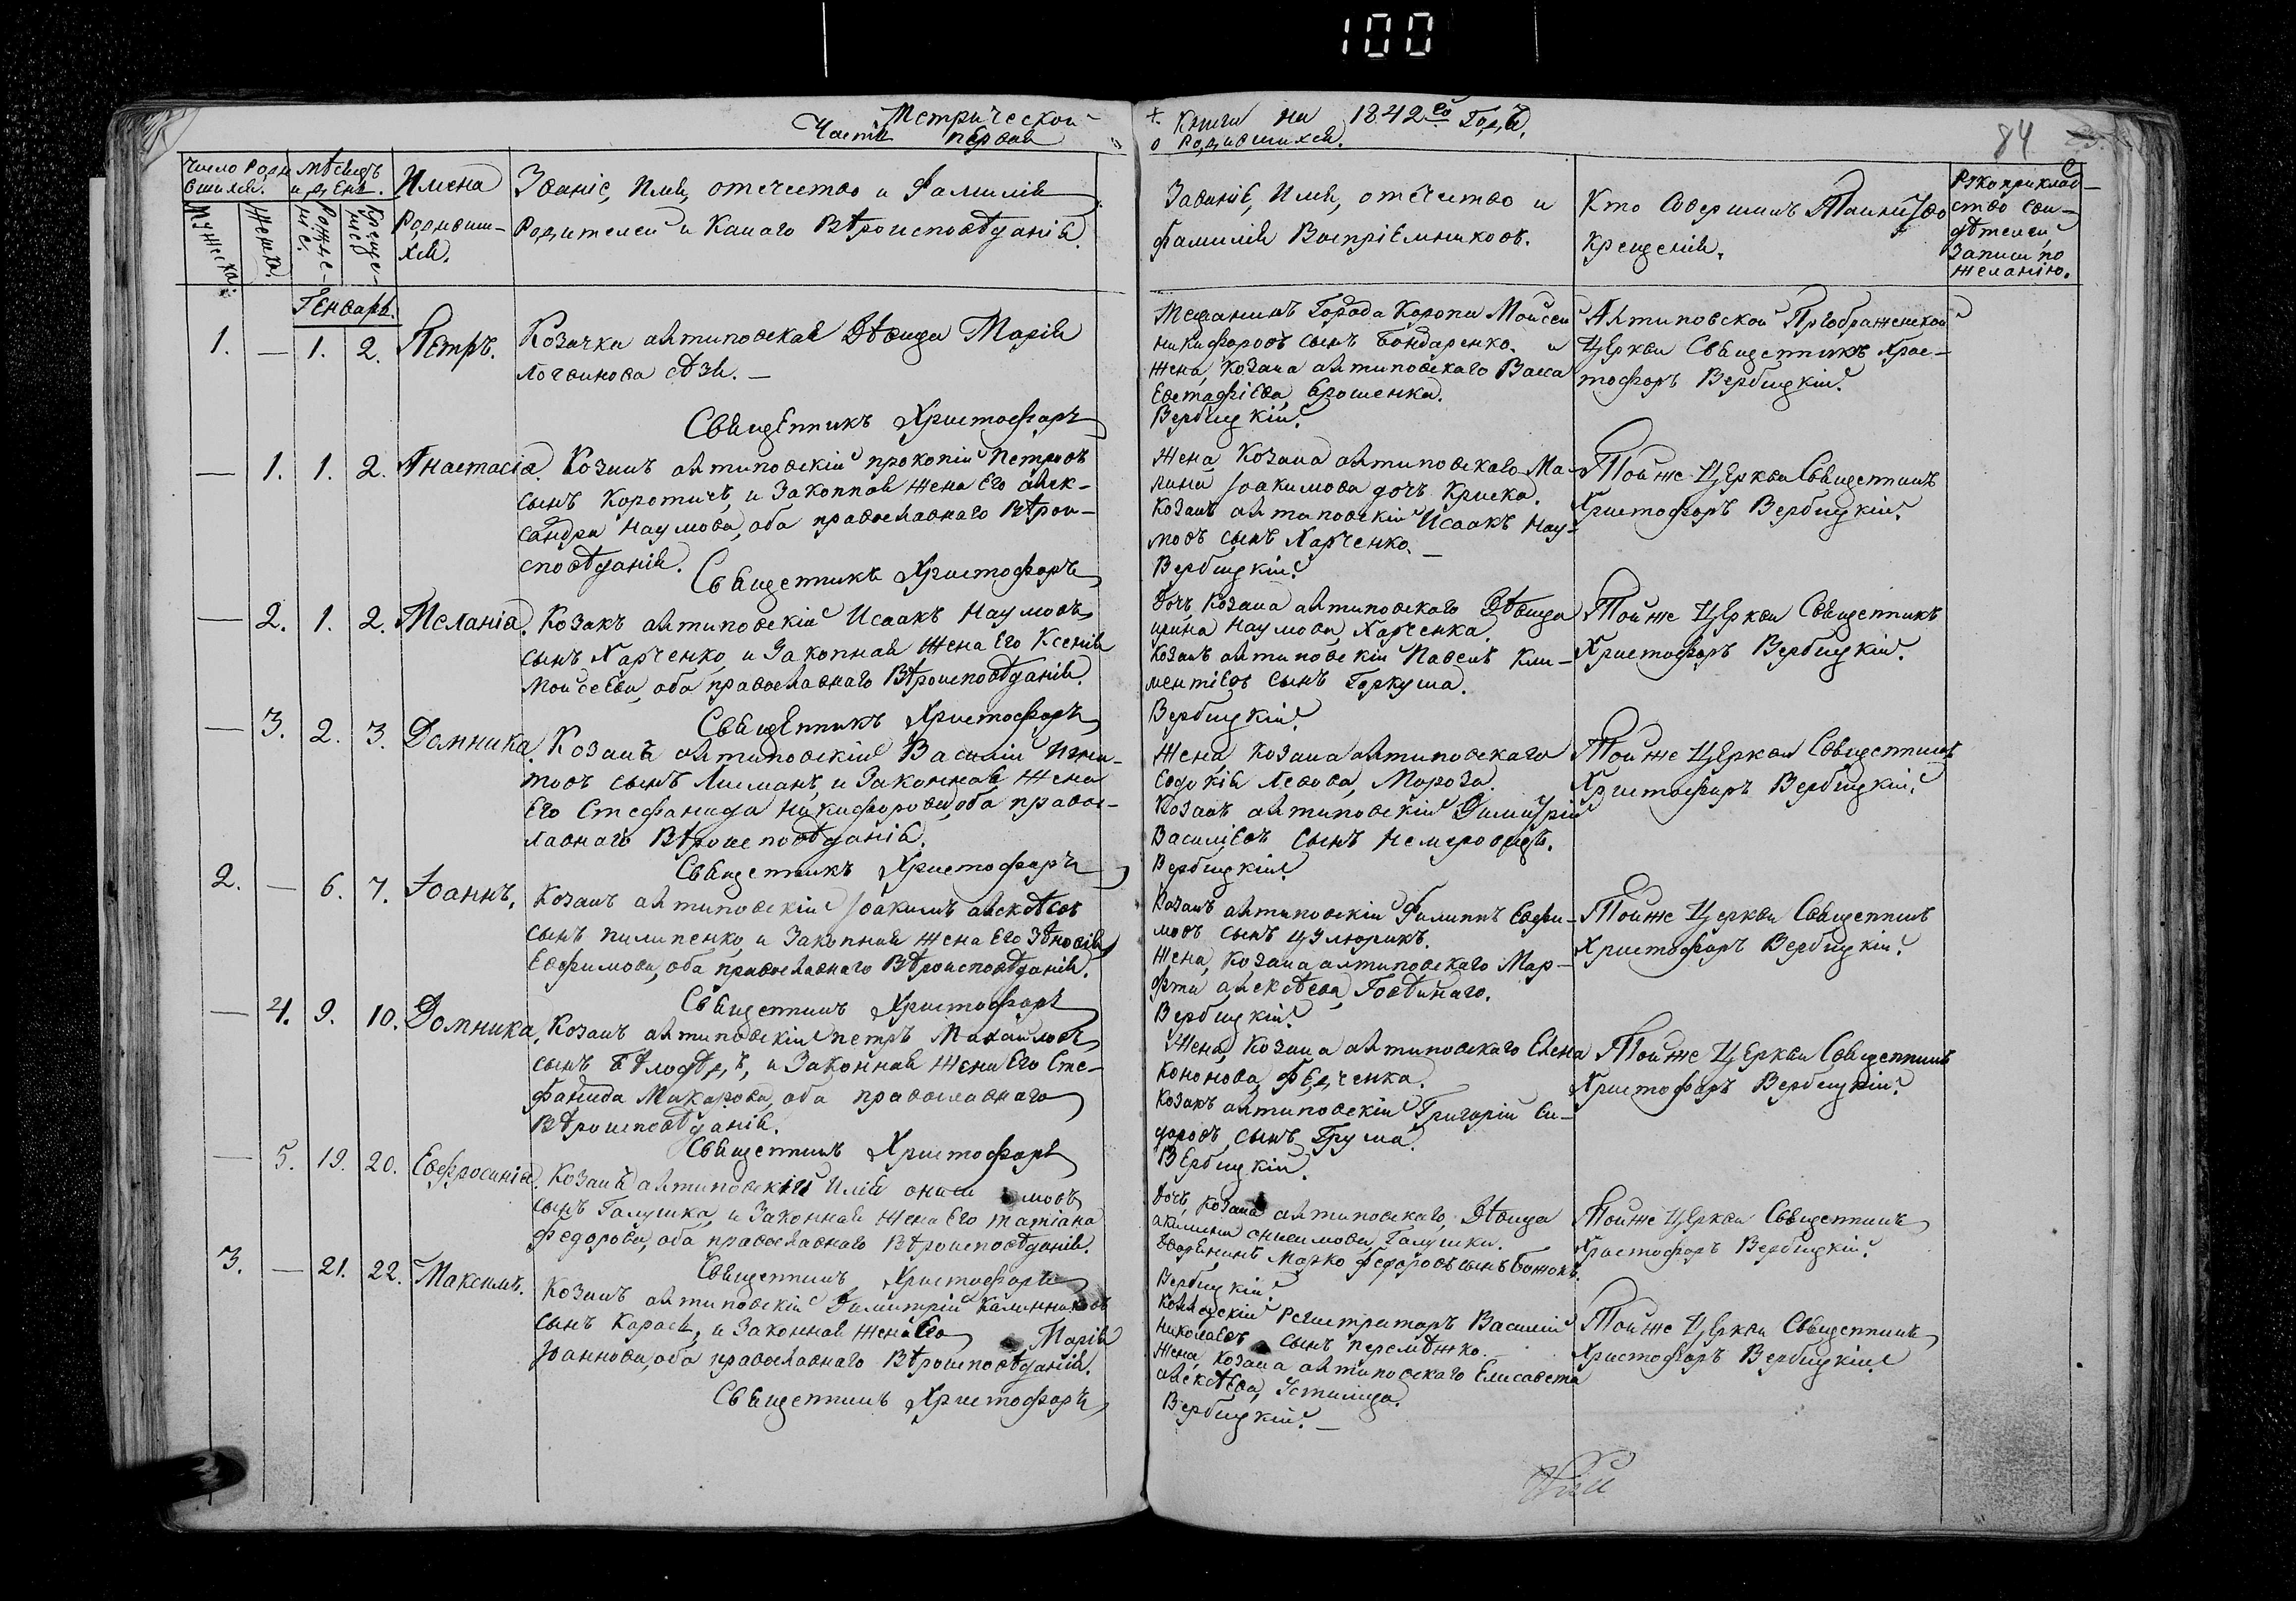 100
Метрической
Части первой
Книги на 1842го Годъ,
о Родившихся.
84
Число Роди
вшихся.
Мѣсяцъ
и День.
Имена
Родивши-
хся.
Званіе, Имя, отечество и Фамилія
Родителей и Какого Вѣроисповѣданія.
Мужеска.
Женска.
Рожде-
ніе.
Креще-
ніе.
Званіе, Имя, отечество и
фамилія Воспріемниковъ.
Кто Совершилъ Таинство
Крещенія.
Рукоприклад-
ство сви-
дѣтелей
Записи по
желанію.
Генварь.
1. — 1. 2. Петръ.
Козачка алтиновская Дѣвица Марія
Логвинова
Священникъ Христофоръ
Мещанинъ Города Коропа Моисей
никифоровъ сынъ Бондаренко. и
жена Козака алтиновскаго Васса
Евстафіева Ерошенка.
Вербицкій.
Алтиновской Преображенской
Церкви Священникъ Хрис-
тофоръ Вербицкій.
— 1. 1. 2. Анастасія.
Козакъ алтиновскій прокопій Петровъ
сынъ Коротичъ, и Законная жена Его алек-
сандра Наумова, оба православнаго Вѣрои-
сповѣданія.
Священникъ Христофоръ
Жена Козака алтиновскаго Ма-
рина Іоакимова дочь Криска.
Козакъ алтиновскій Исаакъ Нау-
мовъ сынъ Харченко. —
Вербицкій.
Тойже Церкви Священникъ
Христофоръ Вербицкій.
— 2. 1. 2. Меланія.
Козакъ алтиновскій Исаакъ Наумовъ
сынъ Харченко, и Законная Жена Его Ксенія
Моисеева, оба православнаго Вѣроисповѣданія.
Священникъ Христофоръ
Дочь Козака алтиновскаго Дѣвица
ирина Наумова Харченка.
Козакъ алтиновскій Павелъ Кли-
ментіевъ сынъ Горкуша.
Вербицкій.
Тойже Церкви Священникъ
Христофоръ Вербицкій.
— 3. 2. 3. Домника.
Козакъ алтиновскій Василій Игна-
товъ сынъ Лисманъ, и Законная Жена
Его Стефанида Никифорова, оба правос-
лавнаго Вѣроисповѣданія.
Священникъ Христофоръ
Жена Козака алтиновскаго
Евдокія Левова, Мороза.
Козакъ алтиновскій Димитрій
Василіевъ Сынъ Немеровецъ.
Вербицкій.
Тойже Церкви Священникъ
Христофоръ Вербицкій.
2. — 6. 7. Іоаннъ.
Козакъ алтиновскій Іоакимъ алексѣевъ
сынъ пилипенко, и Законная жена Его Зѣновія
Евфимова, оба православнаго Вѣроисповѣданія.
Священникъ Христофоръ
Козакъ алтиновскій Филиппъ Евфи-
мовъ сынъ Цулюрикъ.
Жена Козака алтиновскаго Мар-
фа алексѣева,
Вербицкій.
Тойже Церкви Священникъ
Христофоръ Вербицкій.
— 4. 9. 10. Домника.
Козакъ алтиновскій петръ Михайловъ
сынъ Бѣлодѣдъ, и Законная Жена Его Сте-
фанида Макарова, оба православнаго
Вѣроисповѣданія.
Священникъ Христофоръ
Жена Козака алтиновскаго Елена
Кононова, Федченка.
Козакъ алтиновскій Григорій Си-
доровъ сынъ Груша.
Вербицкій.
Тойже Церкви Священникъ
Христофоръ Вербицкій.
— 5. 19. 20. Евфросинія.
Козакъ алтиновскій Илія ониси мовъ
сынъ Галушка, и Законная Жена Его татіана
Федорова, оба православнаго Вѣроисповѣданія.
Священникъ Христофоръ
Дочь Козака алтиновскаго, Дѣвица
акилина онисимова, Галушки.
Дворянинъ Марко Федоровъ сынъ Божокъ.
Вербицкій.
Тойже Церкви Священникъ
Христофоръ Вербицкій.
3. — 21. 22. Максимъ.
Козакъ алтиновскій Димитрій Калинниковъ
сынъ Карась, и Законная жена Его Марія
Іоаннова, оба православнаго Вѣроисповѣданія.
Священникъ Христофоръ
Коллежскій Регистраторъ Василій
Николаевъ сынъ Перемѣжко.
Жена Козака алтиновскаго Елисавета
алексѣева, Устилица.
Вербицкій. —
Тойже Церкви Священникъ
Христофоръ Вербицкій.